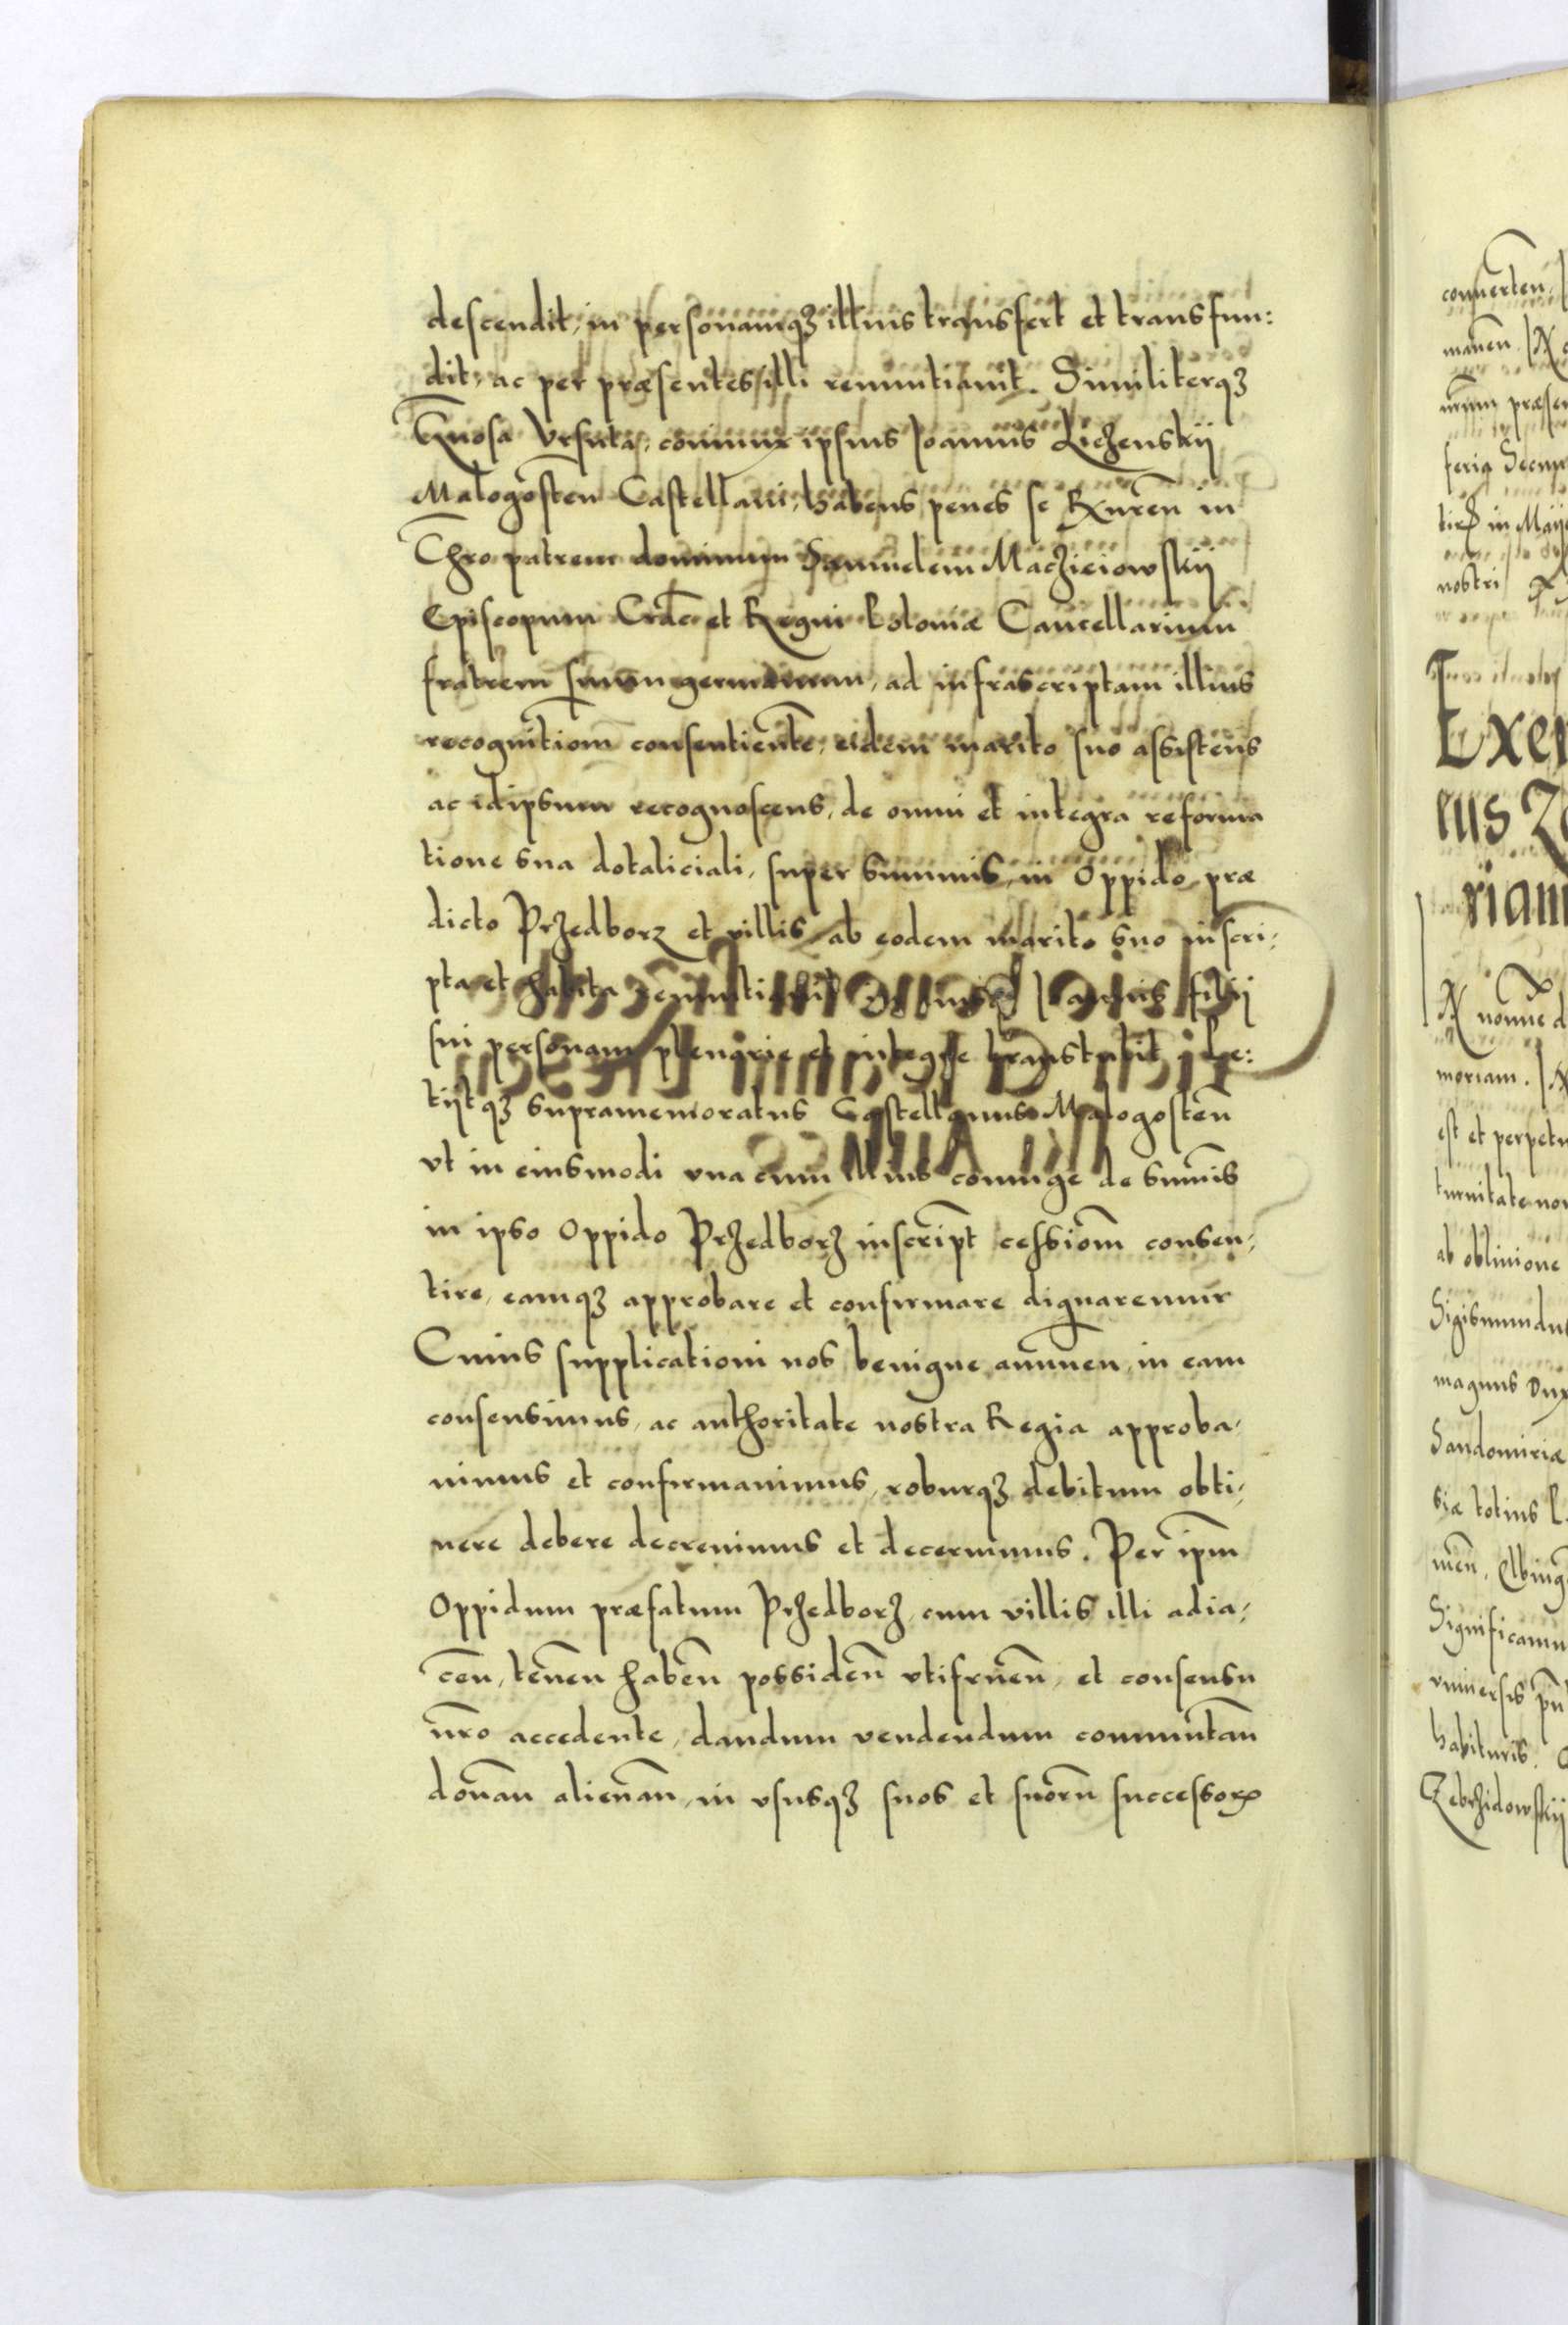 descendit, in personamqꝫ illius transfert et transfun:
dit, ac per præsentes illi renuntiauit. Similiterqꝫ
Gñosa Vrsula, coniunx ipsius Joannis Lezenskij
Malogosteñ Castellani, habens penes se Rxureñ in
Chro patrem dominum Samuelem Maczieiowskij
Episcopum Crac̃ et Regni Poloniæ Cancellarium
fratrem suum germanum, ad infrascriptam illius
recognitiom̃ consentiente, eidem marito suo assistens
ac idipsum recognoscens, de omni et integra reforma
tione sua dotaliciali, super summis, in Oppido præ
dicto Przedborz et villis, ab eodem marito suo inscri-
pta et habita renuntiauit filij
sui personam plenarie et integre transtulit. Pe:
tijtqꝫ supramemoratus Castellanus Malogosteñ
vt in eiusmodi vna cum illius coniuge de sum̃is
in ipso Oppido Przedborz inscript̃ cessiom̃ consen-
tire, eamqꝫ approbare et confirmare dignaremur
Cuius supplicationi nos benigne annueñ, in eam
consensimus, ac authoritate nostra Regia approba-
uimus et confirmauimus, roburqꝫ debitum obti-
nere debere decreuimus et decernimus. Per ipm̃
Oppidum præfatum Przedborz, cum villis illi adia-
ceñ, teneñ habeñ possideñ vtifrueñ, et consensu
nr̃o accedente, dandum vendendum commutañ
donañ alienañ, in vsusqꝫ suos et suorũ successorꝝ
converteñ
præsen
in Maij
nostri
Exem
riam
nomine d
moriam.
est et perpetu
turnitate non
ab obliuione
Sigismundus
magnus Dux
Sandomiriæ
siæ totius
Significamu
vniuersis
habituris.
Zebrzidowskij